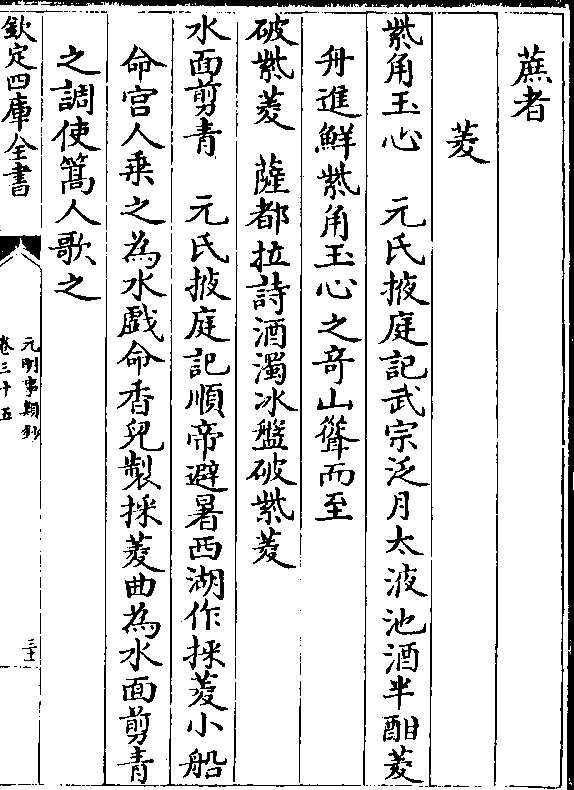 蔗者
菱
紫角玉心　元氏掖庭記武宗泛月太液池酒半酣菱
舟進鮮紫角玉心之竒山聳而至
破紫菱　薩都拉詩酒濁冰盤破紫菱
水面剪青　元氏掖庭記順帝避暑西湖作採菱小船
命宫人乗之為水戲命香兒製採菱曲為水面剪青
之調使篙人歌之
欽定四庫全書
元明事類鈔
卷三十五